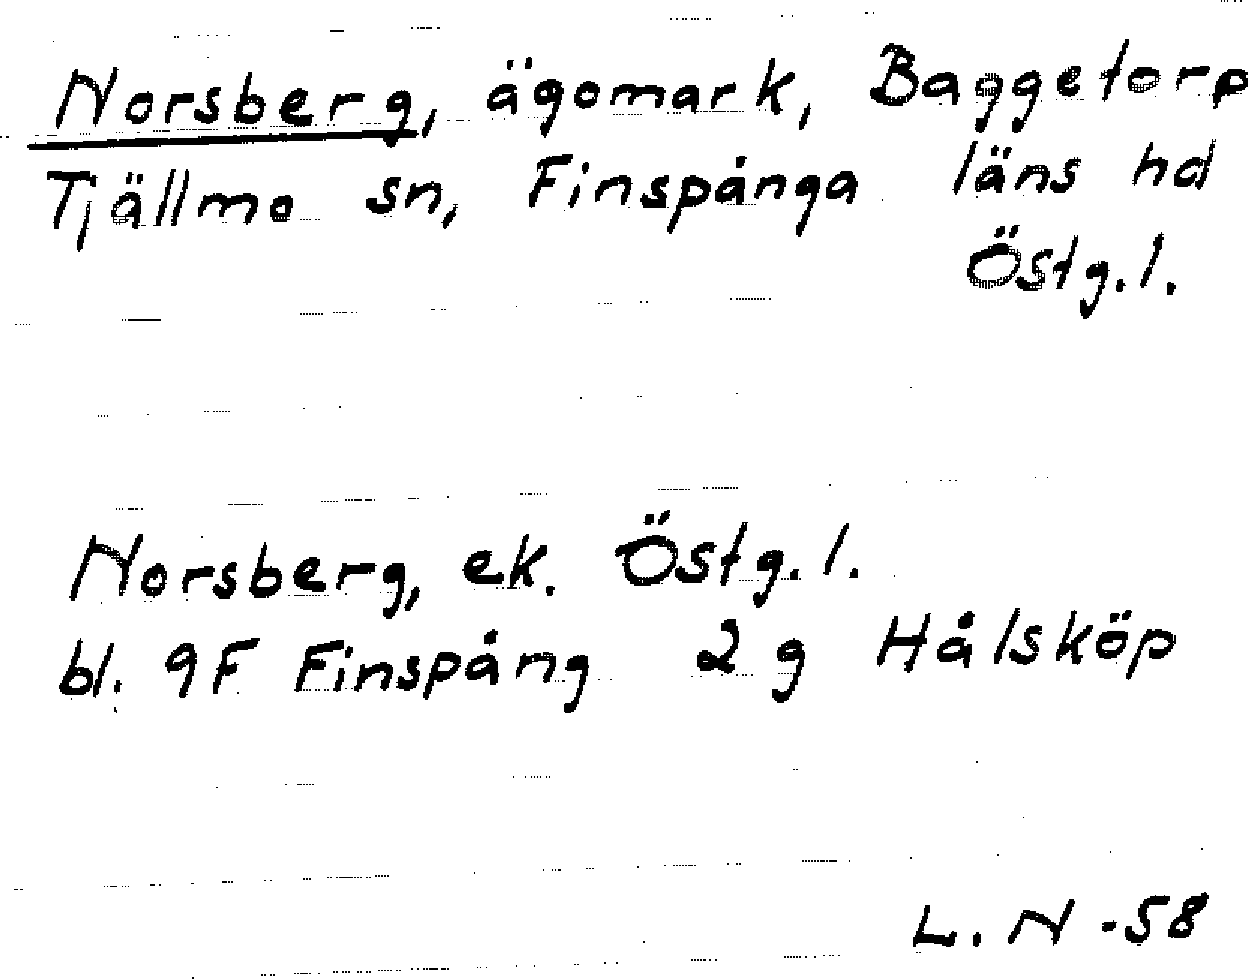 Norsberg, ägomark, Baggetorp
Tjällmo sn, Finspånga läns hd
Östg.l.
Norsberg, ek. Östg.l.
bl. 9F Finspång 2g Hålsköp
L. N -58